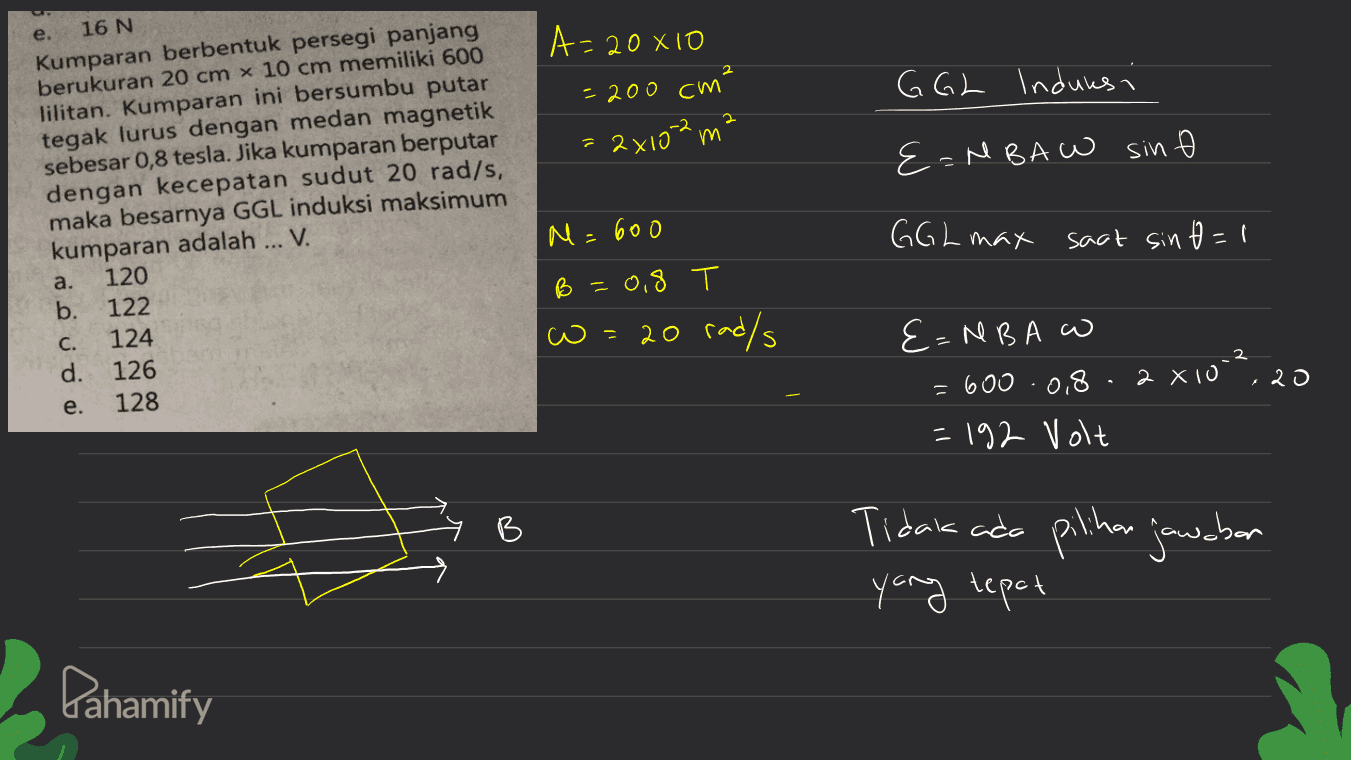 e. 16 N
Kumparan berbentuk persegi panjang
berukuran 20 cm × 10 cm memiliki 600
lilitan. Kumparan ini bersumbu putar
tegak lurus dengan medan magnetik
sebesar 0,8 tesla. Jika kumparan berputar
dengan kecepatan sudut 20 rad/s,
maka besarnya GGL induksi maksimum
kumparan adalah ... V.
a. 120
b. 122
c. 124
d. 126
e. 128
A = 20 x 10
= 200 cm²
= 2 x 10⁻² m²
N = 600
B = 0,8 T
ω = 20 rad/s
GGL Induksi
ε = N B A ω sin θ
GGL max saat sin θ = 1
ε = N B A ω
= 600 . 0,8 . 2 x 10⁻² . 20
= 192 Volt
B
Tidak ada pilihan jawaban
yang tepat
Pahamify